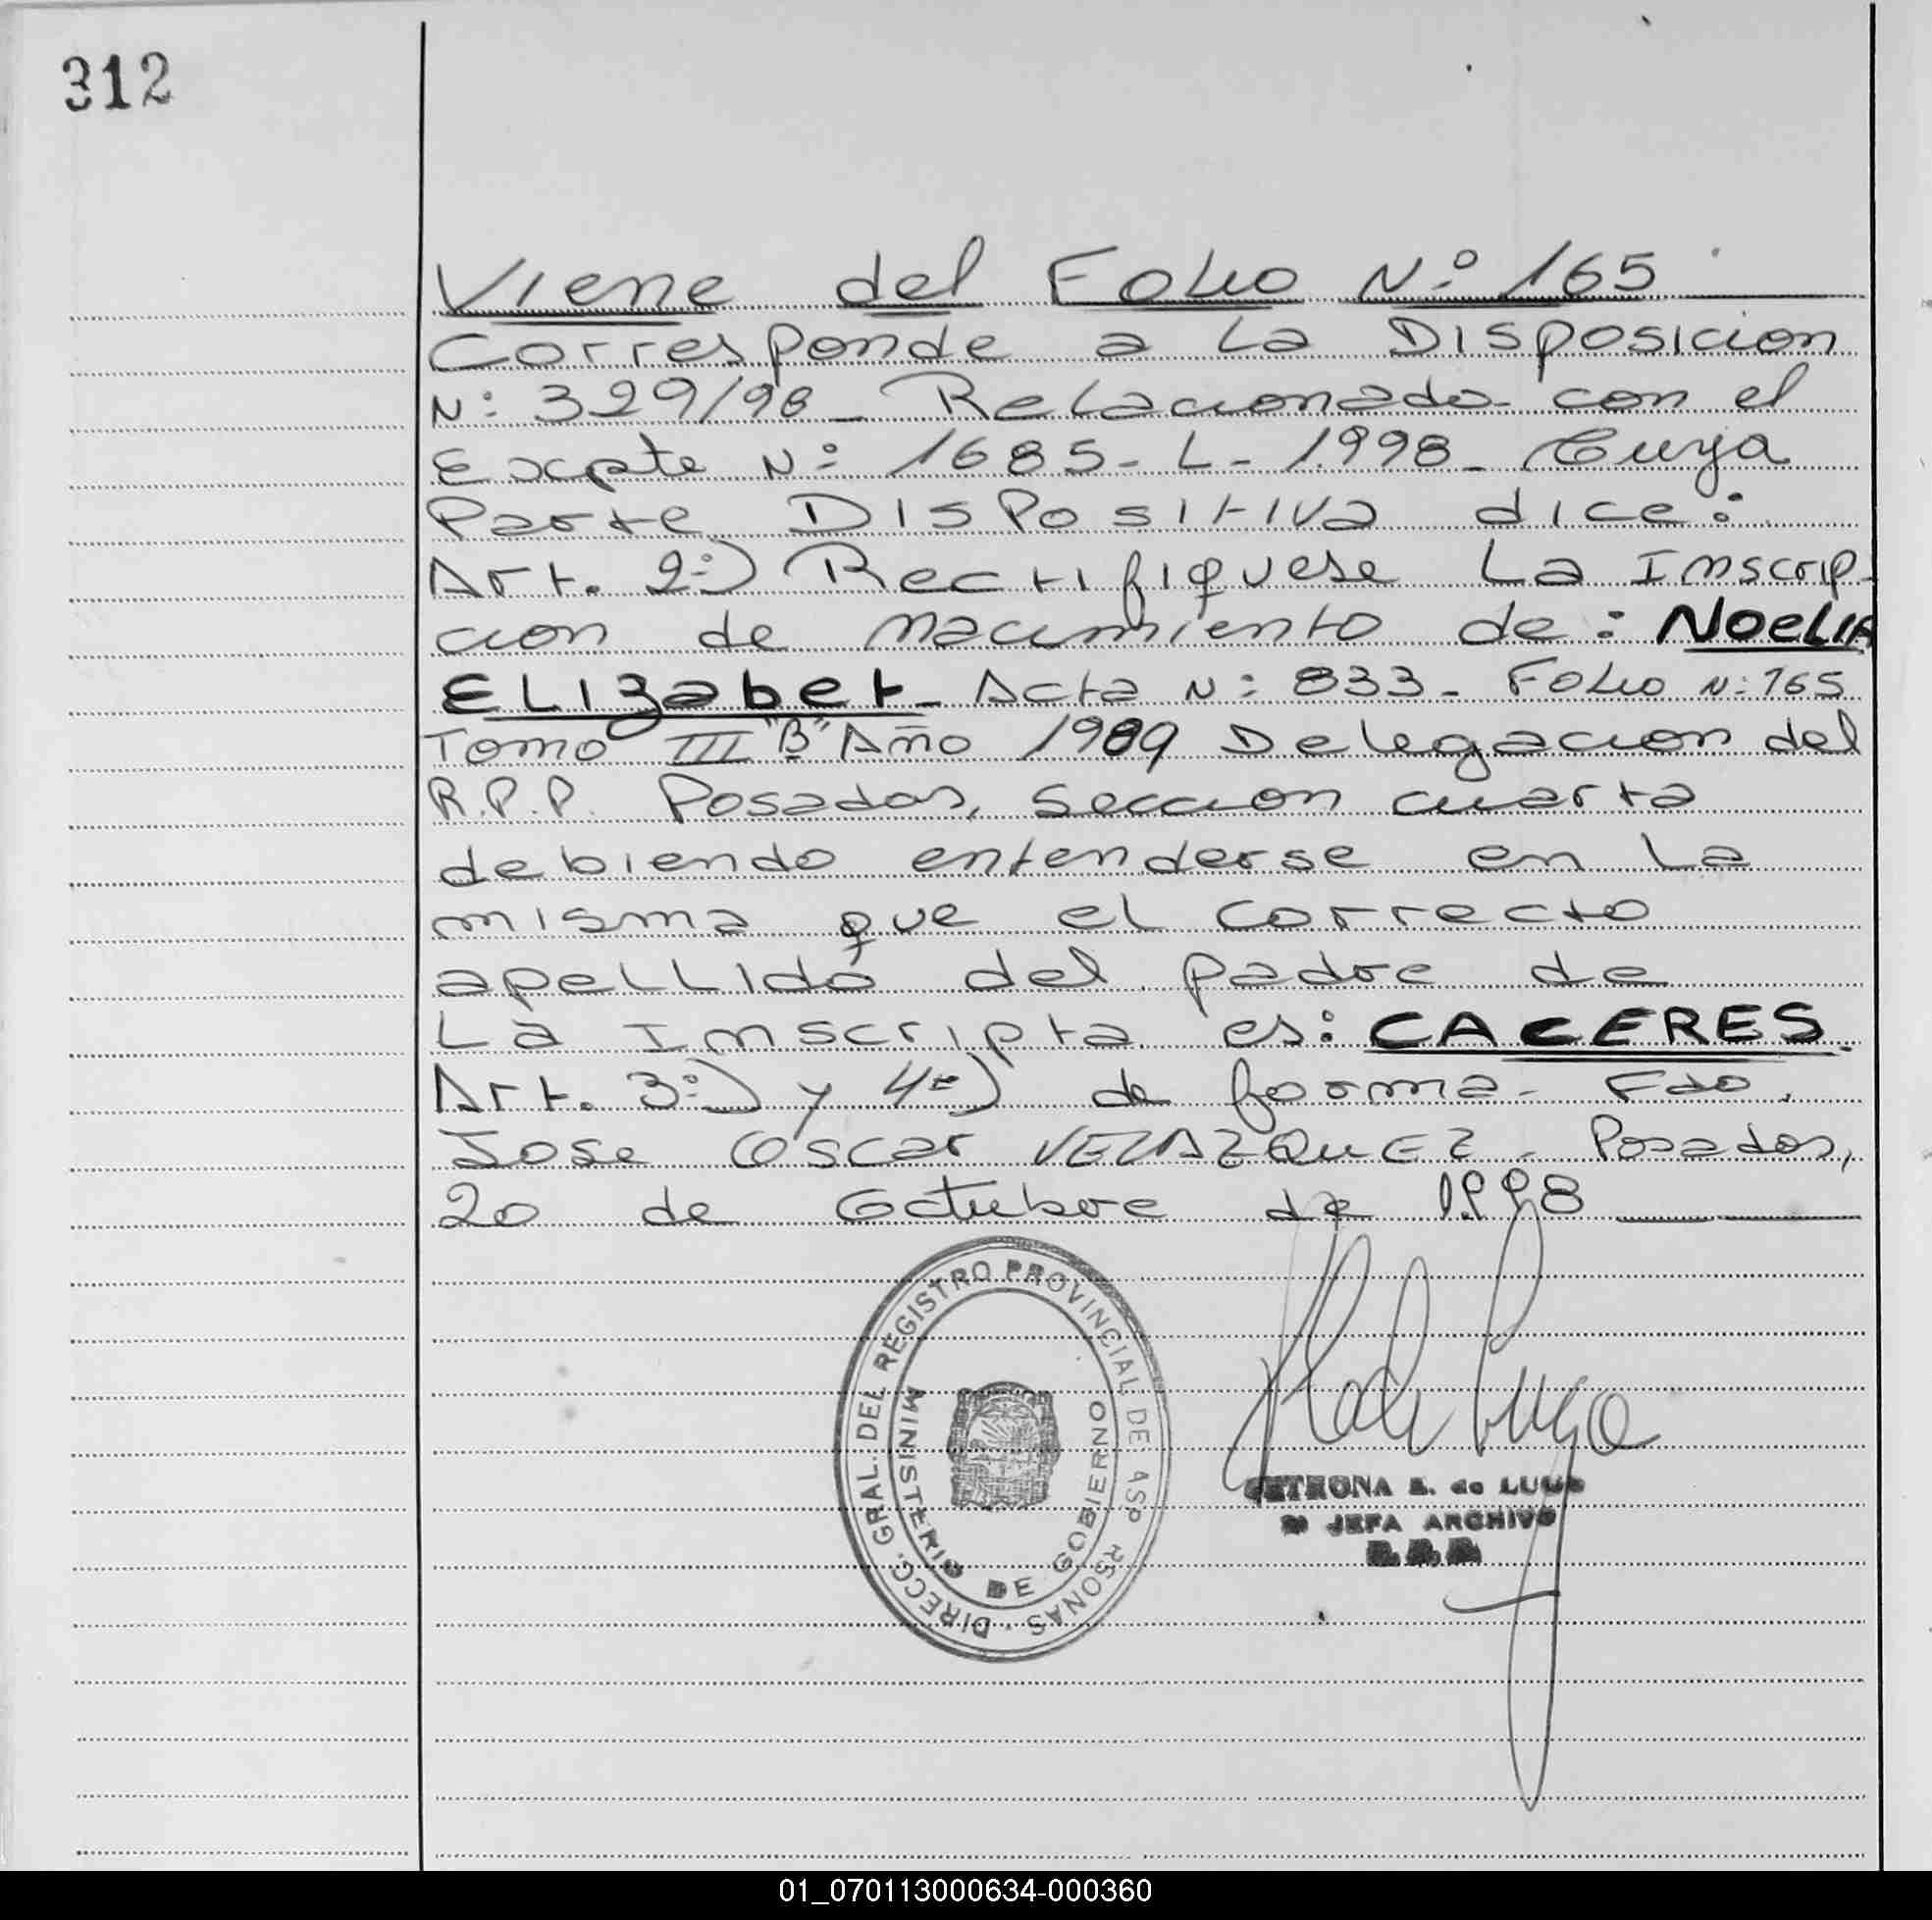 312
Viene del Folio Nº 165
Corresponde a La Disposicion
Nº 329/98 - Relacionado con el
Expte Nº 1685 - L - 1998 - Cuya
Parte Dispositiva dice:
Art. 2º) Rectifiquese La Inscrip-
cion de nacimiento de: NOELIA
ELIZabet - Acta Nº 833 - Folio Nº 165
Tomo III "B" Año 1989 Delegacion del
R.P.P. Posadas, Seccion cuarta
debiendo entenderse en La
misma que el correcto
apellido del padre de
La Inscripta es: CACERES.
Art. 3º) y 4º) de forma - Fdo.
Jose Oscar VELAZQUEZ - Posadas,
20 de Octubre de 1998
DIRECC. GRAL. DEL REGISTRO PROVINCIAL DE AS P RSONAS
MINISTERIO DE GOBIERNO
PETRONA E. de LUGO
JEFA ARCHIVO
01_070113000634-000360